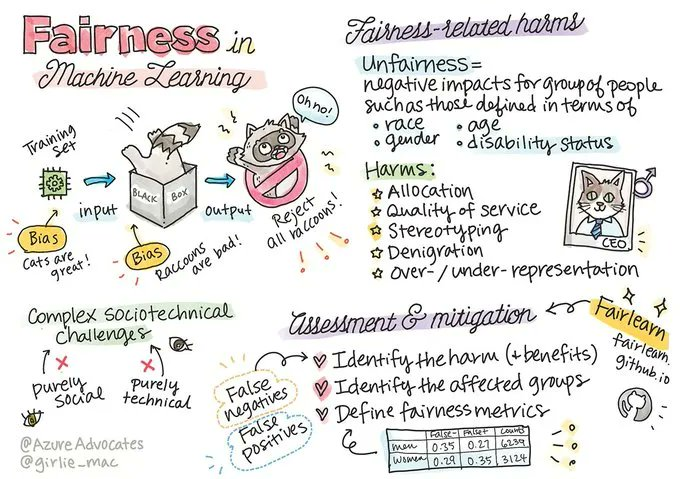 Fairness in
Machine Learning
Training
Set
input
BLACK BOX
output
Oh no!
Reject
all raccoons!
Bias
Cats are
great!
Bias
Raccoons
are bad!
Fairness-related harms
Unfairness =
negative impacts for group of people
such as those defined in terms of
• race • age
• gender • disability status
Harms:
Allocation
Quality of service
Stereotyping
Denigration
Over-/under-representation
CEO
Complex sociotechnical
challenges
purely
social
purely
technical
@AzureAdvocates
@girlie_mac
Assessment & mitigation
Fairlearn
fairlearn.
github.io
Identify the harm (+benefits)
Identify the affected groups
Define fairness metrics
False
negatives
False
positives
False- False+ Counts
men 0.35 0.27 6239
Women 0.29 0.35 3124